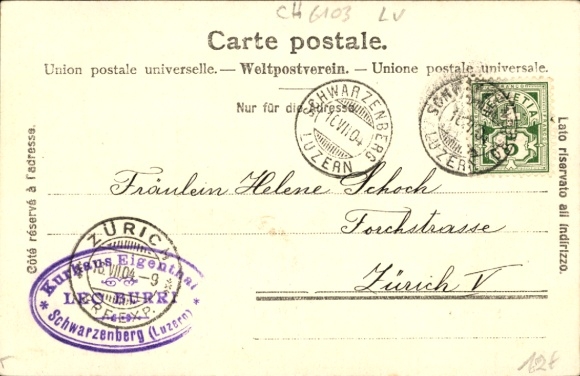 CH 6103 LV
Carte postale.
Union postale universelle. — Weltpostverein. — Unione postale universale.
Nur für die Adresse.
SCHWARZENBERG
LUZERN
SCHWARZENBERG
LUZERN
HELVETIA
5
Côté réservé à l'adresse.
Lato riservato all indirizzo.
Fräulein Helene Schoch
Forchstrasse
Zürich V
ZÜRICH
VII 04 - 9
BRF. EXP.
* Kurhaus Eigenthal *
LEO BURRI
Schwarzenberg (Luzern)
128